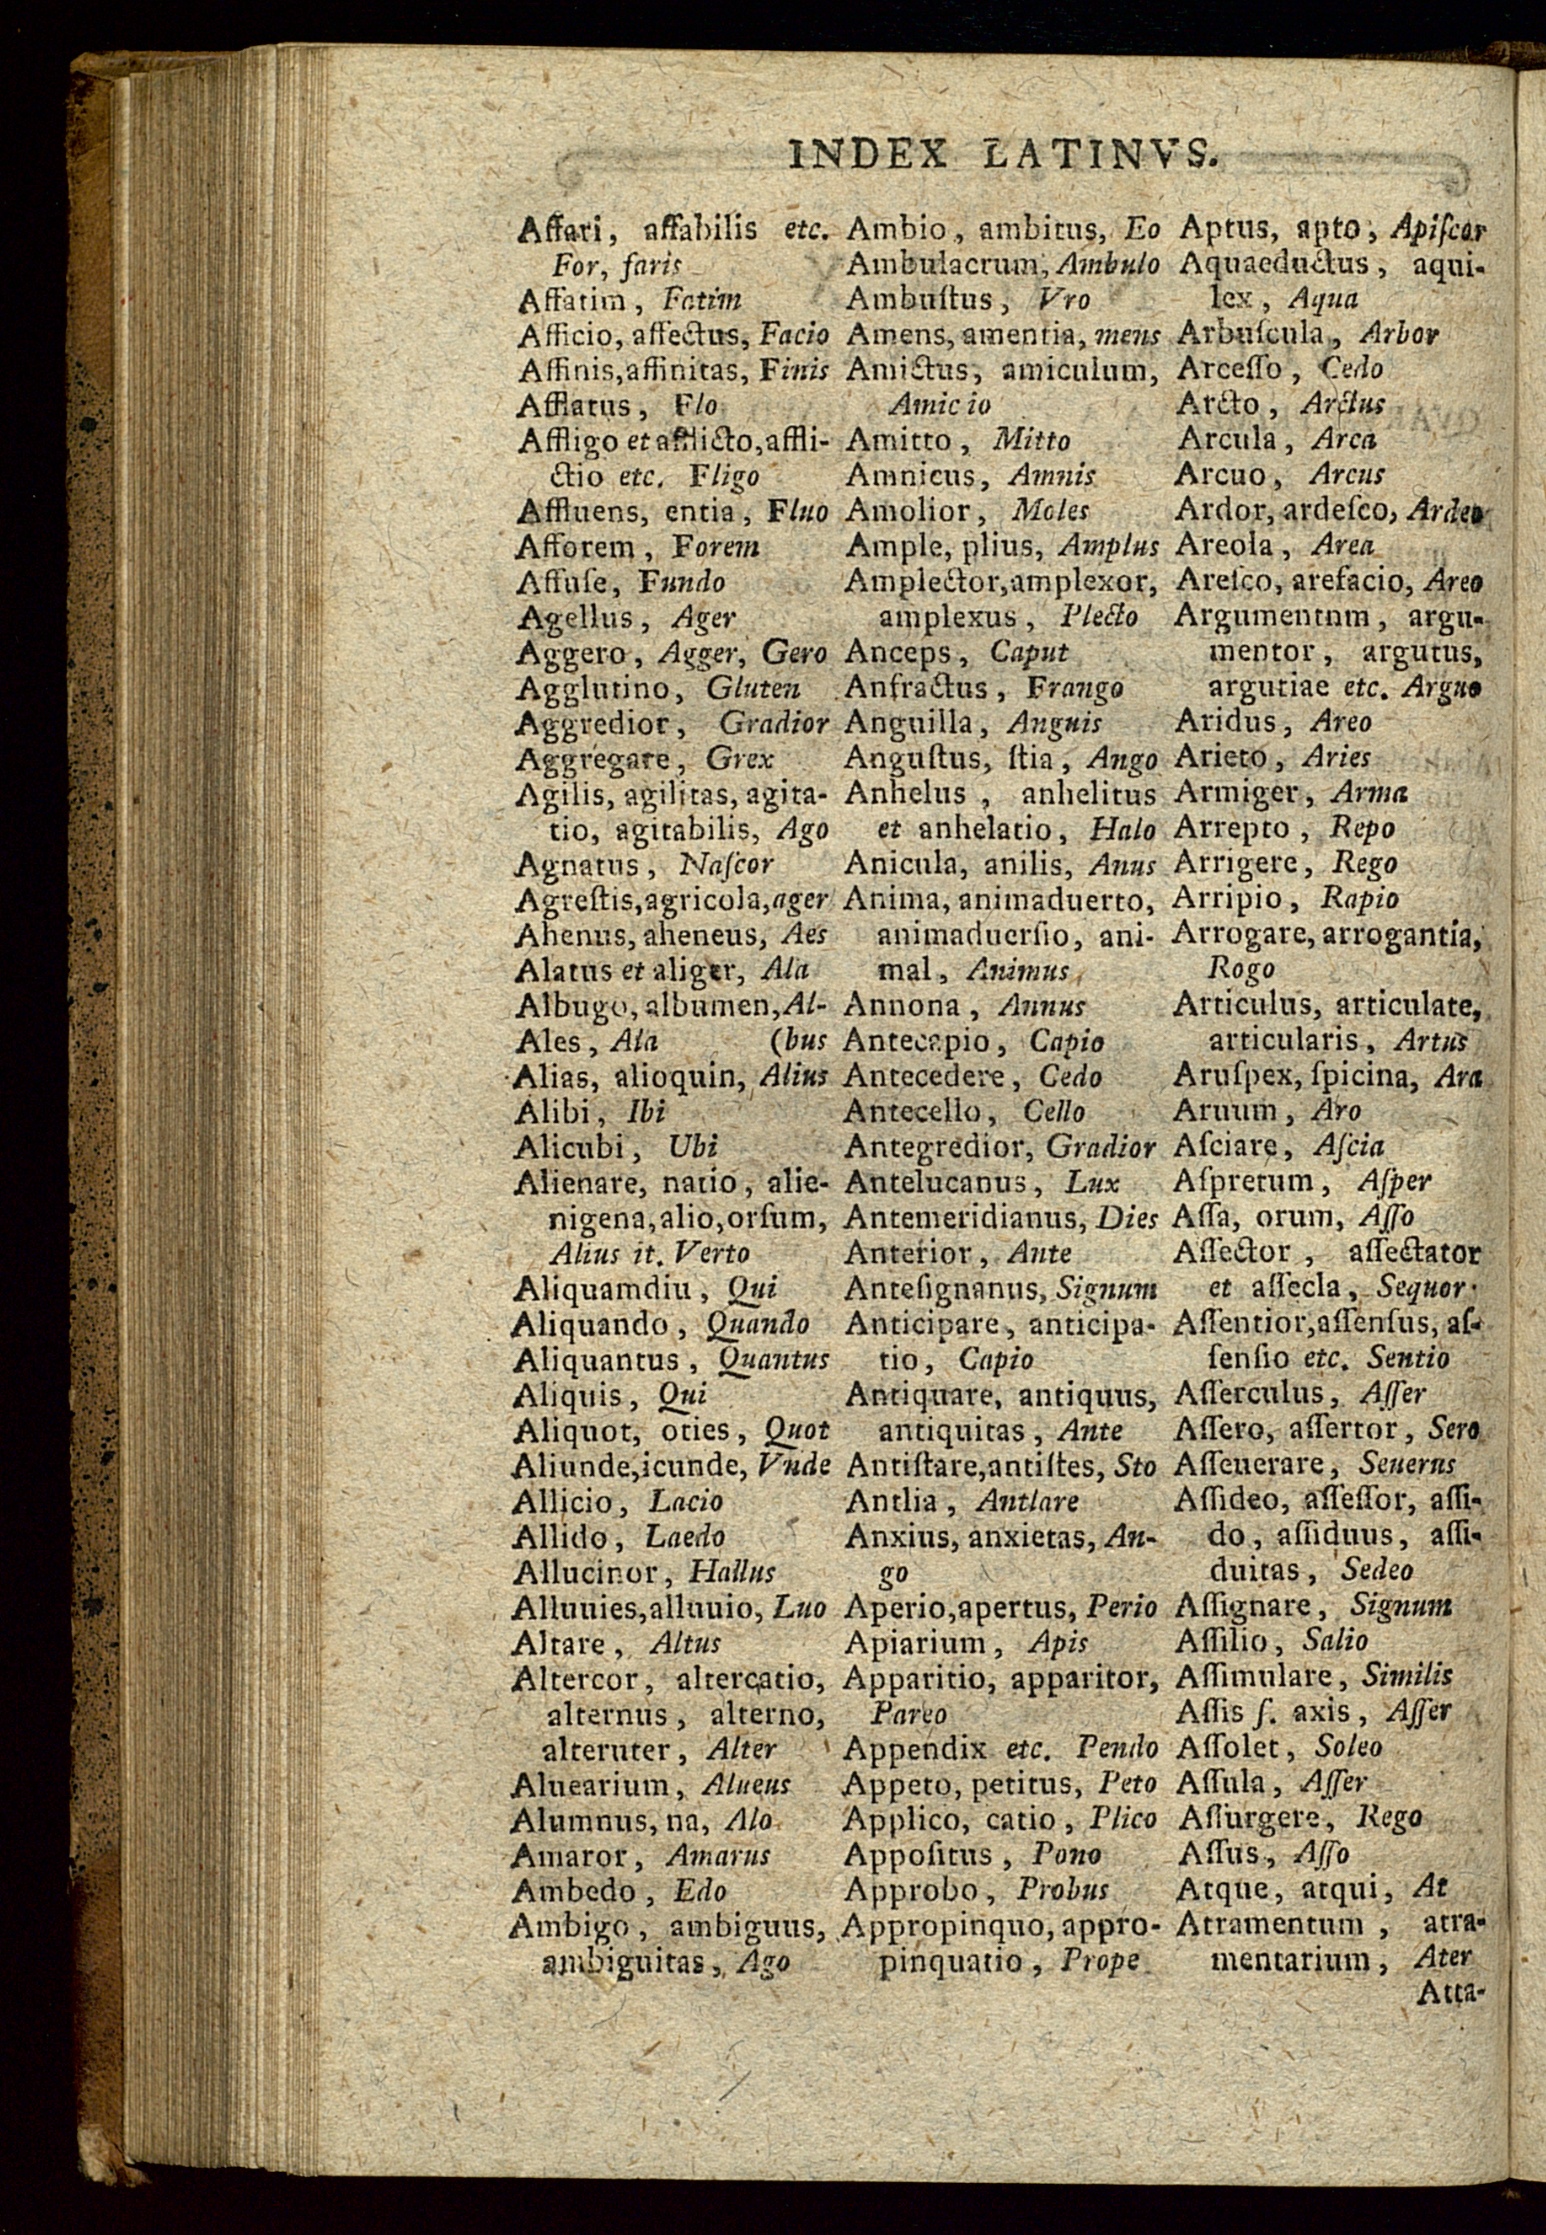 INDEX LATINVS.
Affari, affabilis etc.
For, faris
Affatim, Fatim
Afficio, affectus, Facio
Affinis, affinitas, Finis
Afflatus, Flo
Affligo et afflicto, affli-
ctio etc. Fligo
Affluens, entia, Fluo
Afforem, Forem
Affuſe, Fundo
Agellus, Ager
Aggero, Agger, Gero
Agglutino, Gluten
Aggredior, Gradior
Aggregare, Grex
Agilis, agilitas, agita-
tio, agitabilis, Ago
Agnatus, Naſcor
Agreſtis, agricola, ager
Ahenus, aheneus, Aes
Alatus et aliger, Ala
Albugo, albumen, Al-
Ales, Ala (bus
Alias, alioquin, Alius
Alibi, Ibi
Alicubi, Ubi
Alienare, natio, alie-
nigena, alio, orſum,
Alius it. Verto
Aliquamdiu, Qui
Aliquando, Quando
Aliquantus, Quantus
Aliquis, Qui
Aliquot, oties, Quot
Aliunde, icunde, Vnde
Allicio, Lacio
Allido, Laedo
Allucinor, Hallus
Alluuies, alluuio, Luo
Altare, Altus
Altercor, altercatio,
alternus, alterno,
alteruter, Alter
Aluearium, Alueus
Alumnus, na, Alo
Amaror, Amarus
Ambedo, Edo
Ambigo, ambiguus,
ambiguitas, Ago
Ambio, ambitus, Eo
Ambulacrum, Ambulo
Ambuſtus, Vro
Amens, amentia, mens
Amictus, amiculum,
Amicio
Amitto, Mitto
Amnicus, Amnis
Amolior, Moles
Ample, plius, Amplus
Amplector, amplexor,
amplexus, Plecto
Anceps, Caput
Anfractus, Frango
Anguilla, Anguis
Anguſtus, ſtia, Ango
Anhelus, anhelitus
et anhelatio, Halo
Anicula, anilis, Anus
Anima, animaduerto,
animaduerſio, ani-
mal, Animus
Annona, Annus
Antecapio, Capio
Antecedere, Cedo
Antecello, Cello
Antegredior, Gradior
Antelucanus, Lux
Antemeridianus, Dies
Anterior, Ante
Anteſignanus, Signum
Anticipare, anticipa-
tio, Capio
Antiquare, antiquus,
antiquitas, Ante
Antiſtare, antiſtes, Sto
Antlia, Antlare
Anxius, anxietas, An-
go
Aperio, apertus, Perio
Apiarium, Apis
Apparitio, apparitor,
Pareo
Appendix etc. Pendo
Appeto, petitus, Peto
Applico, catio, Plico
Appoſitus, Pono
Approbo, Probus
Appropinquo, appro-
pinquatio, Prope
Aptus, apto, Apiſcor
Aquaeductus, aqui-
lex, Aqua
Arbuſcula, Arbor
Arceſſo, Cedo
Arcto, Arctus
Arcula, Arca
Arcuo, Arcus
Ardor, ardeſco, Ardeo
Areola, Area
Areſco, arefacio, Areo
Argumentnm, argu-
mentor, argutus,
argutiae etc. Arguo
Aridus, Areo
Arieto, Aries
Armiger, Arma
Arrepto, Repo
Arrigere, Rego
Arripio, Rapio
Arrogare, arrogantia,
Rogo
Articulus, articulate,
articularis, Artus
Aruſpex, ſpicina, Ara
Aruum, Aro
Aſciare, Aſcia
Aſpretum, Aſper
Aſſa, orum, Aſſo
Aſſector, aſſectator
et aſſecla, Sequor
Aſſentior, aſſenſus, aſ-
ſenſio etc. Sentio
Aſſerculus, Aſſer
Aſſero, aſſertor, Sero
Aſſeuerare, Seuerus
Aſſideo, aſſeſſor, aſſi-
do, aſſiduus, aſſi-
duitas, Sedeo
Aſſignare, Signum
Aſſilio, Salio
Aſſimulare, Similis
Aſſis ſ. axis, Aſſer
Aſſolet, Soleo
Aſſula, Aſſer
Aſſurgere, Rego
Aſſus, Aſſo
Atque, atqui, At
Atramentum, atra-
mentarium, Ater
Atta-